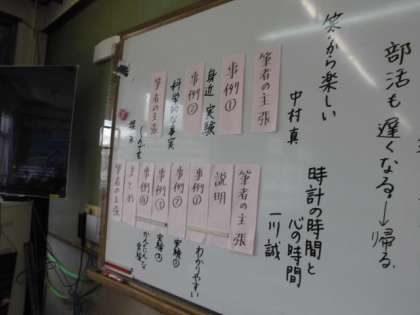 部活も遅くなる→帰る。
笑うから楽しい
中村真
筆者の主張
事例①
身近 実験
事例②
科学的な事実
筆者の主張
時計の時間と
心の時間
一川誠
筆者の主張
説明
事例①
わかりやすい
事例②
実験①
事例③
実験②
事例④
かんたんな
実験
まとめ
筆者の主張